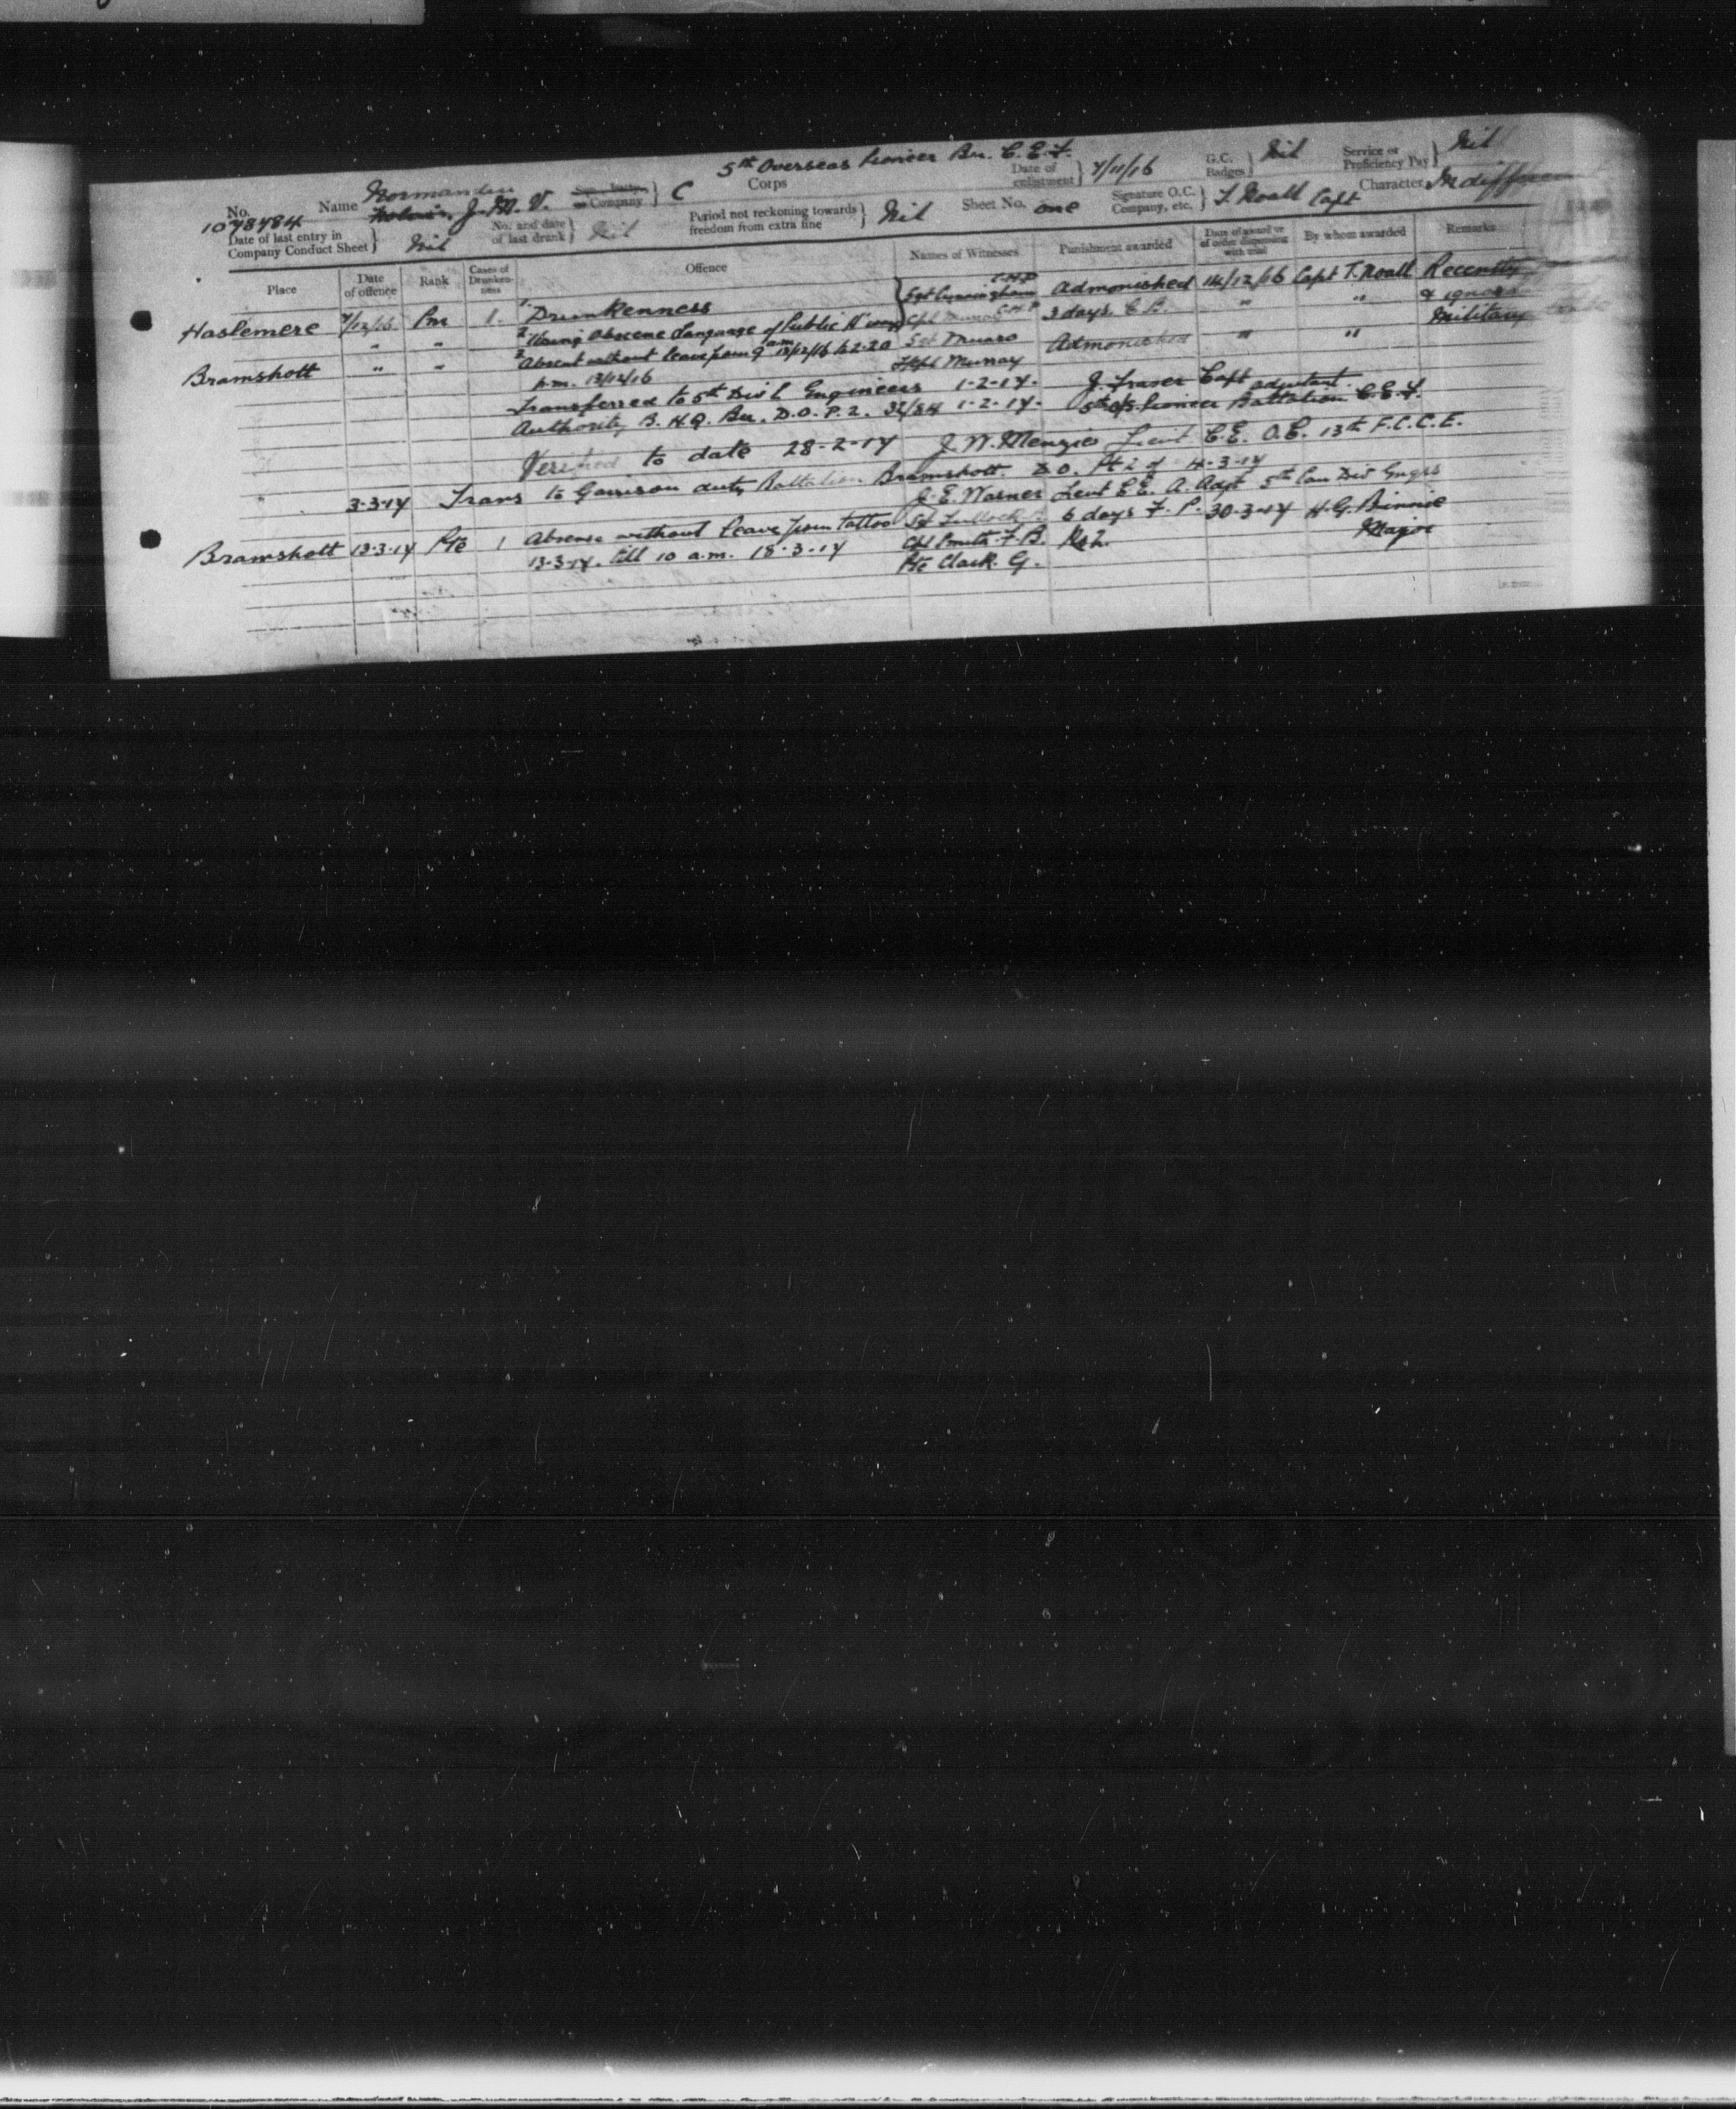 5th Overseas Pioneer Bn. C.E.F.
No. 1078484 Name Normandin J. M. V. Company } C Corps Date of enlistment } 7/11/16 G.C. Badges } Nil Service or Proficiency Pay } Nil
Date of last entry in Company Conduct Sheet } Nil No. and date of last drunk } Nil Period not reckoning towards freedom from extra fine } Nil Sheet No. one Signature O.C. Company, etc. } T. Noall Capt Character Indifferen
Place Date of offence Rank Cases of Drunkenness Offence Names of Witnesses Punishment awarded Date of award or of order dispensing with trial By whom awarded Remarks
Haslemere 7/12/16 Pnr 1. 1. Drunkenness Sgt Cunningham C.M.P Admonished 14/12/16 Capt T. Noall Recently
" " 2 Using Obscene Language of Public H'way Cpl C.M.P 3 days C.B. " " & ignor
Bramshott " " 3 Absent without leave from 9 a.m. 13/12/16 to 2.30 Sgt Munro Admonished " " Military
p.m. 13/12/16 Murray
Transferred to 5th Div'l Engineers 1-2-17. J. Fraser Capt adjutant.
Authority B. H.Q. Bn. D.O. P. 2. 32/84 1-2-17. 5th O/S. Pioneer Battalion C.E.F.
Verified to date 28-2-17 J. W. Menzie Lieut C.E. O.C. 13th F.C.C.E.
" 3-3-17 Trans to Garrison duty Battalion Bramshott. D.O. Pt 2 of 4-3-17
J. E. Warner Lieut C.E. A. Adjt 5th Can Div Engrs
Bramshott 13-3-17 Pte 1 Absence without leave from tattoo 6 days F. P. 30-3-17 H. G. Binnie
13-3-17. till 10 a.m. 18-3-17 Cpl Smith F. B. No 2. Major
Pte Clark. G.